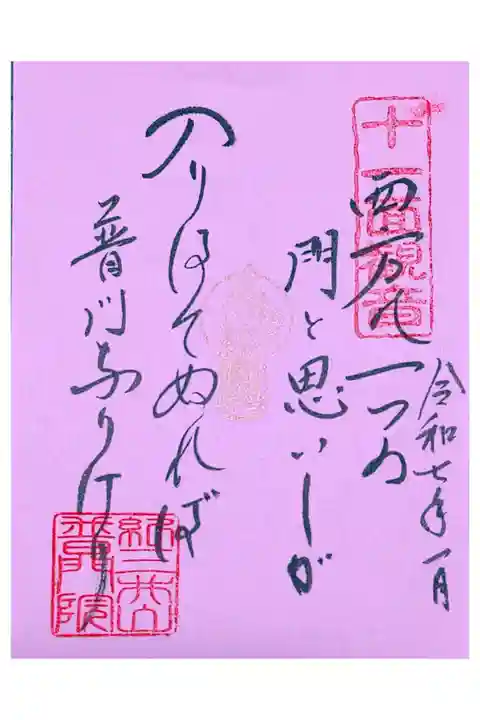 十一面観音
令和七年一月
一つの
門と思いしが
入りはてぬれば
普門なりけり